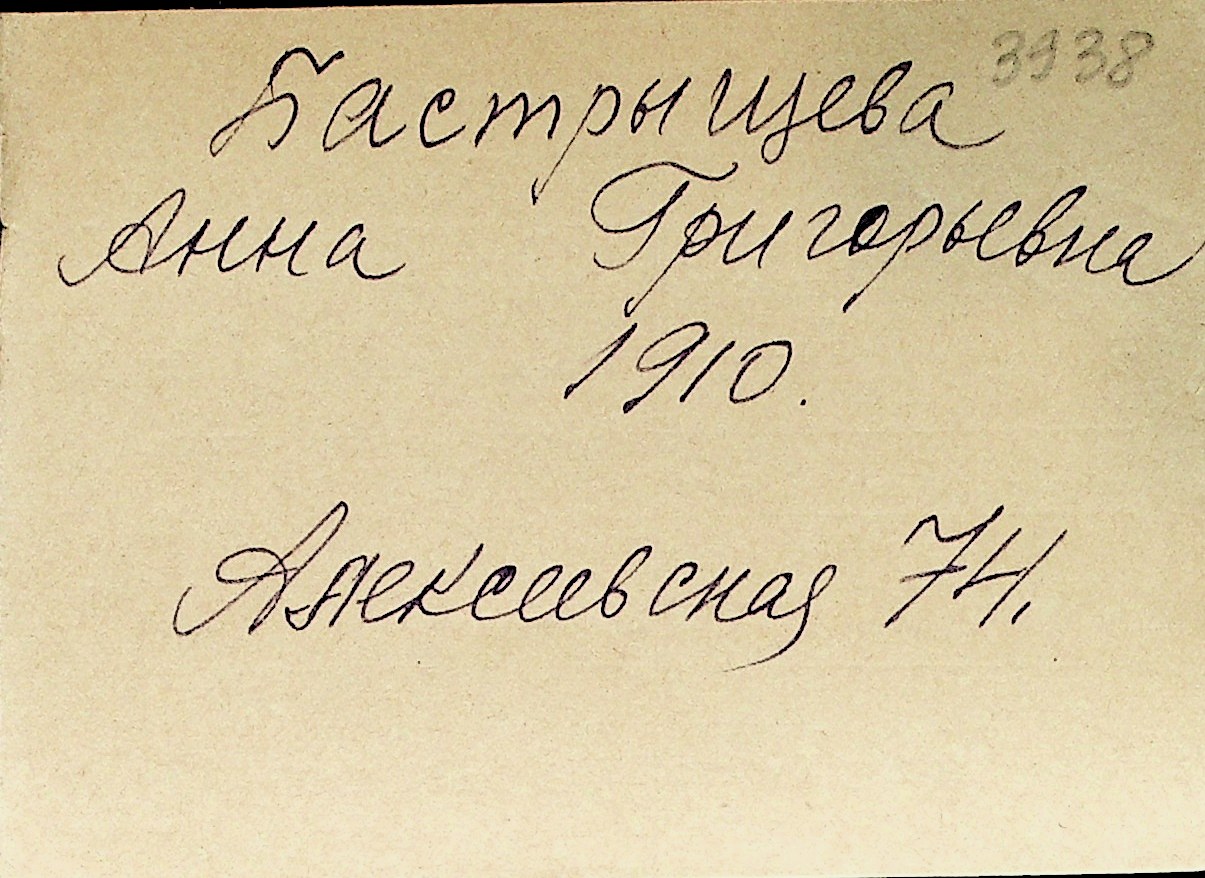 3938
Бастрыщева
Анна Григорьевна
1910.
Алексеевская 74.